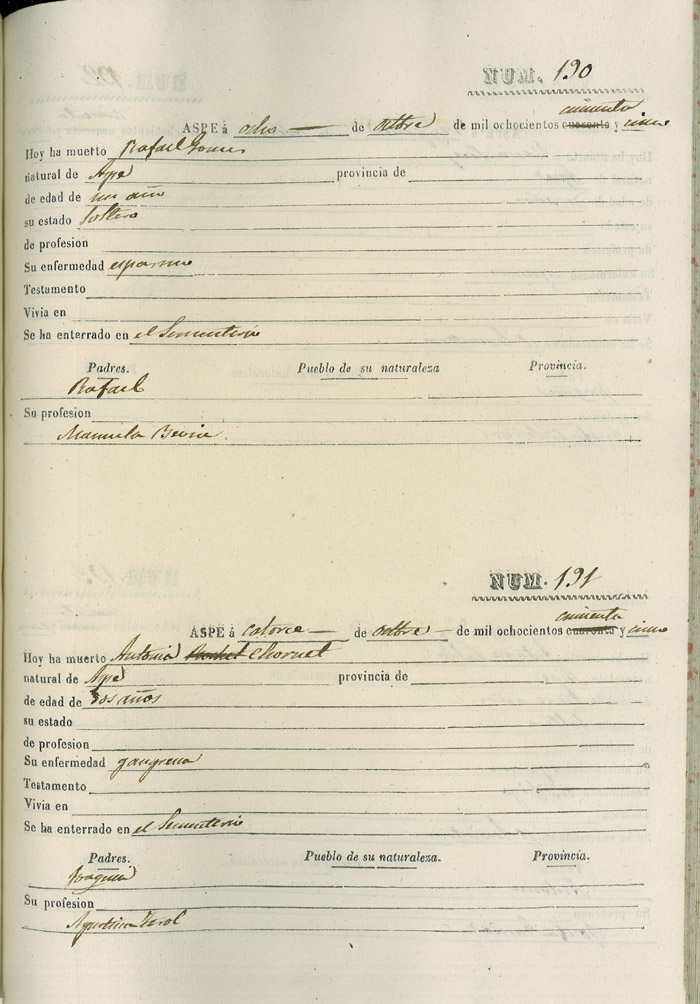 NUM. 190
cincuenta
ASPE á ocho de octbre de mil ochocientos cuarenta y cinco
Hoy ha muerto Rafael
natural de Aspe provincia de
de edad de un año
su estado soltero
de profesion
Su enfermedad espasmo
Testamento
Vivia en
Se ha enterrado en el Sementerio
Padres. Pueblo de su naturaleza Provincia.
Rafael
Su profesion
Manuela
NUM. 191
cincuenta
ASPE á catorce de octbre de mil ochocientos cuarenta y cinco
Hoy ha muerto Antonia Chornet
natural de Aspe provincia de
de edad de dos años
su estado
de profesion
Su enfermedad gangrena
Testamento
Vivia en
Se ha enterrado en el Sementerio
Padres. Pueblo de su naturaleza. Provincia.
Joaquin
Su profesion
Agustina Terol